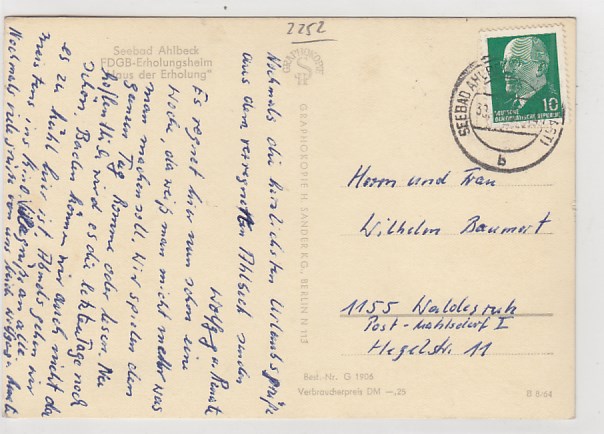 2252
Seebad Ahlbeck
FDGB-Erholungsheim
„Haus der Erholung"
GRAPHOKOPIE
GRAPHOKOPIE H. SANDER KG., BERLIN N 113
Nochmals die herzlichsten Urlaubsgrüße
aus dem verregneten Ahlbeck senden
Wolfg. u. Renate
Es regnet hier nun schon eine
Woche, da weiß man nicht mehr was
man machen soll. Wir spielen den
ganzen Tag Romme oder lesen. Na
hoffentlich wird es die letzten Tage noch
schön. Baden können wir auch nicht da
es zu kühl hier ist. Abends gehen wir
meistens ins Kino. Viele Grüße an alle.
Nochmals viele Grüße von uns
SEEBAD AHLB
b
10
DEUTSCHE
DEMOKRATISCHE REPUBLIK
Herrn und Frau
Wilhelm Baumert
1155 Waldesruh
Post-Mahlsdorf I
Hegelstr. 11
Best.-Nr. G 1806
Verbraucherpreis DM —,25
B 8/64